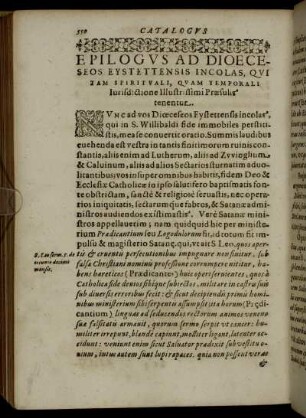 550 CATALOGVS
EPILOGVS AD DIOECE-
SEOS EYSTETTENSIS INCOLAS, QVI
TAM SPIRITVALI, QVAM TEMPORALI
Iurisdictione Illustrissimi Præsulis
tenentur.
NVNC ad vos Diœceseos Eystettensis incolas,
qui in S. Willibaldi fide immobiles perstiti-
stis, mea se conuertit oratio. Summis laudibus
euehenda est vestra in tantis finitimorum ruinis con-
stantia, aliis enim ad Lutherum, aliis ad Zvvinglium
& Caluinum, aliis ad alios Sectarios
vos in super omnibus habiti, fidem Deo &
Ecclesiæ Catholicæ in ipso salutifero baptismatis fon-
te obstrictam, sanctè & religiosè seruastis, nec operato-
res iniquitatis, sectarum que fabros, & Satanæ admi-
nistros audiendos existimastis. Verè Satanæ mini-
stros appellauerim; nam quidquid hic per ministe-
rium Prædicantium seu fit, id totum fit im-
pulsu & magisterio Satanæ, qui, vt ait S. Leo, quos aper-
B. Leo serm. 5. de tis & cruentis persecutionibus impugnare non sinitur, sub
falsa Christiani nominis professione corrumpere nititur, ha-
bens hæreticos (Prædicantes) huic operi seruientes, quos à
Catholica fide deuios sibique subiectos, militare in castris suis
sub diuersis erroribus fecit: & sicut decipiendis primis homi-
nibus ministerium sibi serpentis assumpsit ita horum (Prædi-
cantium) linguas ad seducendos rectorum animos veneno
suæ falsitatis armauit, quorum sermo serpit vt cancer: hu-
militer irrepunt, blandè capiunt, molliter ligant, latenter oc-
cidunt: veniunt enim sicut Saluator prædixit sub vestitu o-
uium, intus autem sunt lupi rapaces. quia non possent veras
&